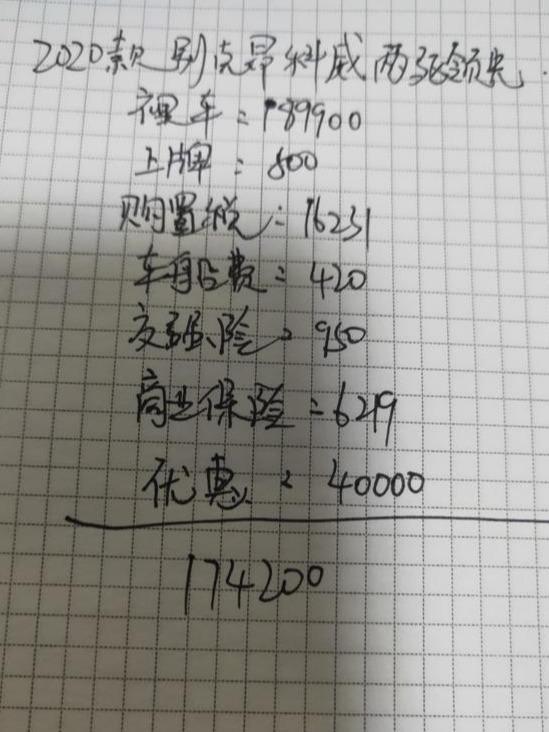 2020款别克昂科威两驱领先.
裸车:189900
上牌:800
购置税:16231
车船费:420
交强险:950
商业保险:6219
优惠:40000
174200